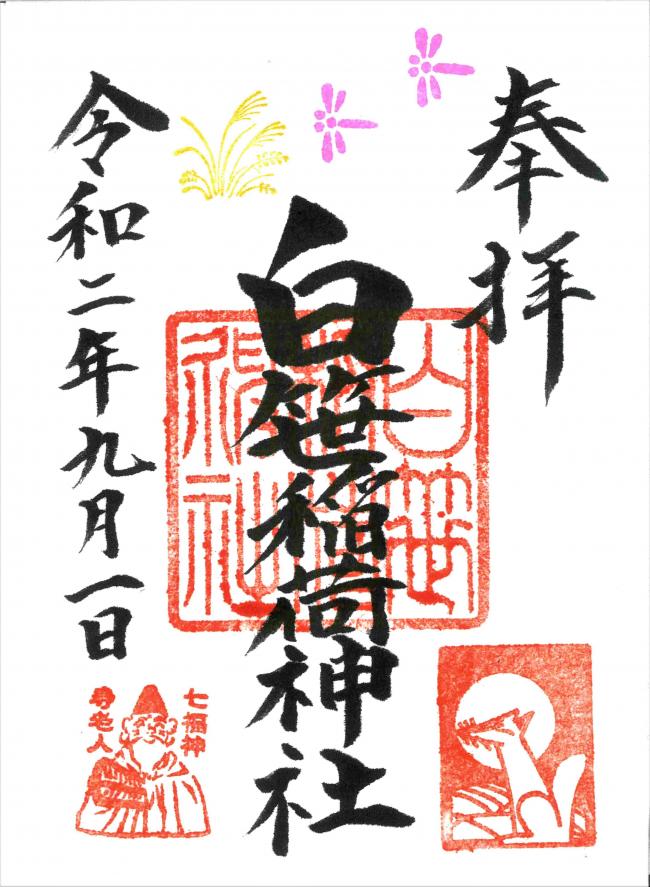 奉拝
白笹稲荷神社
令和二年九月一日
白笹
神社
七福神
寿老人